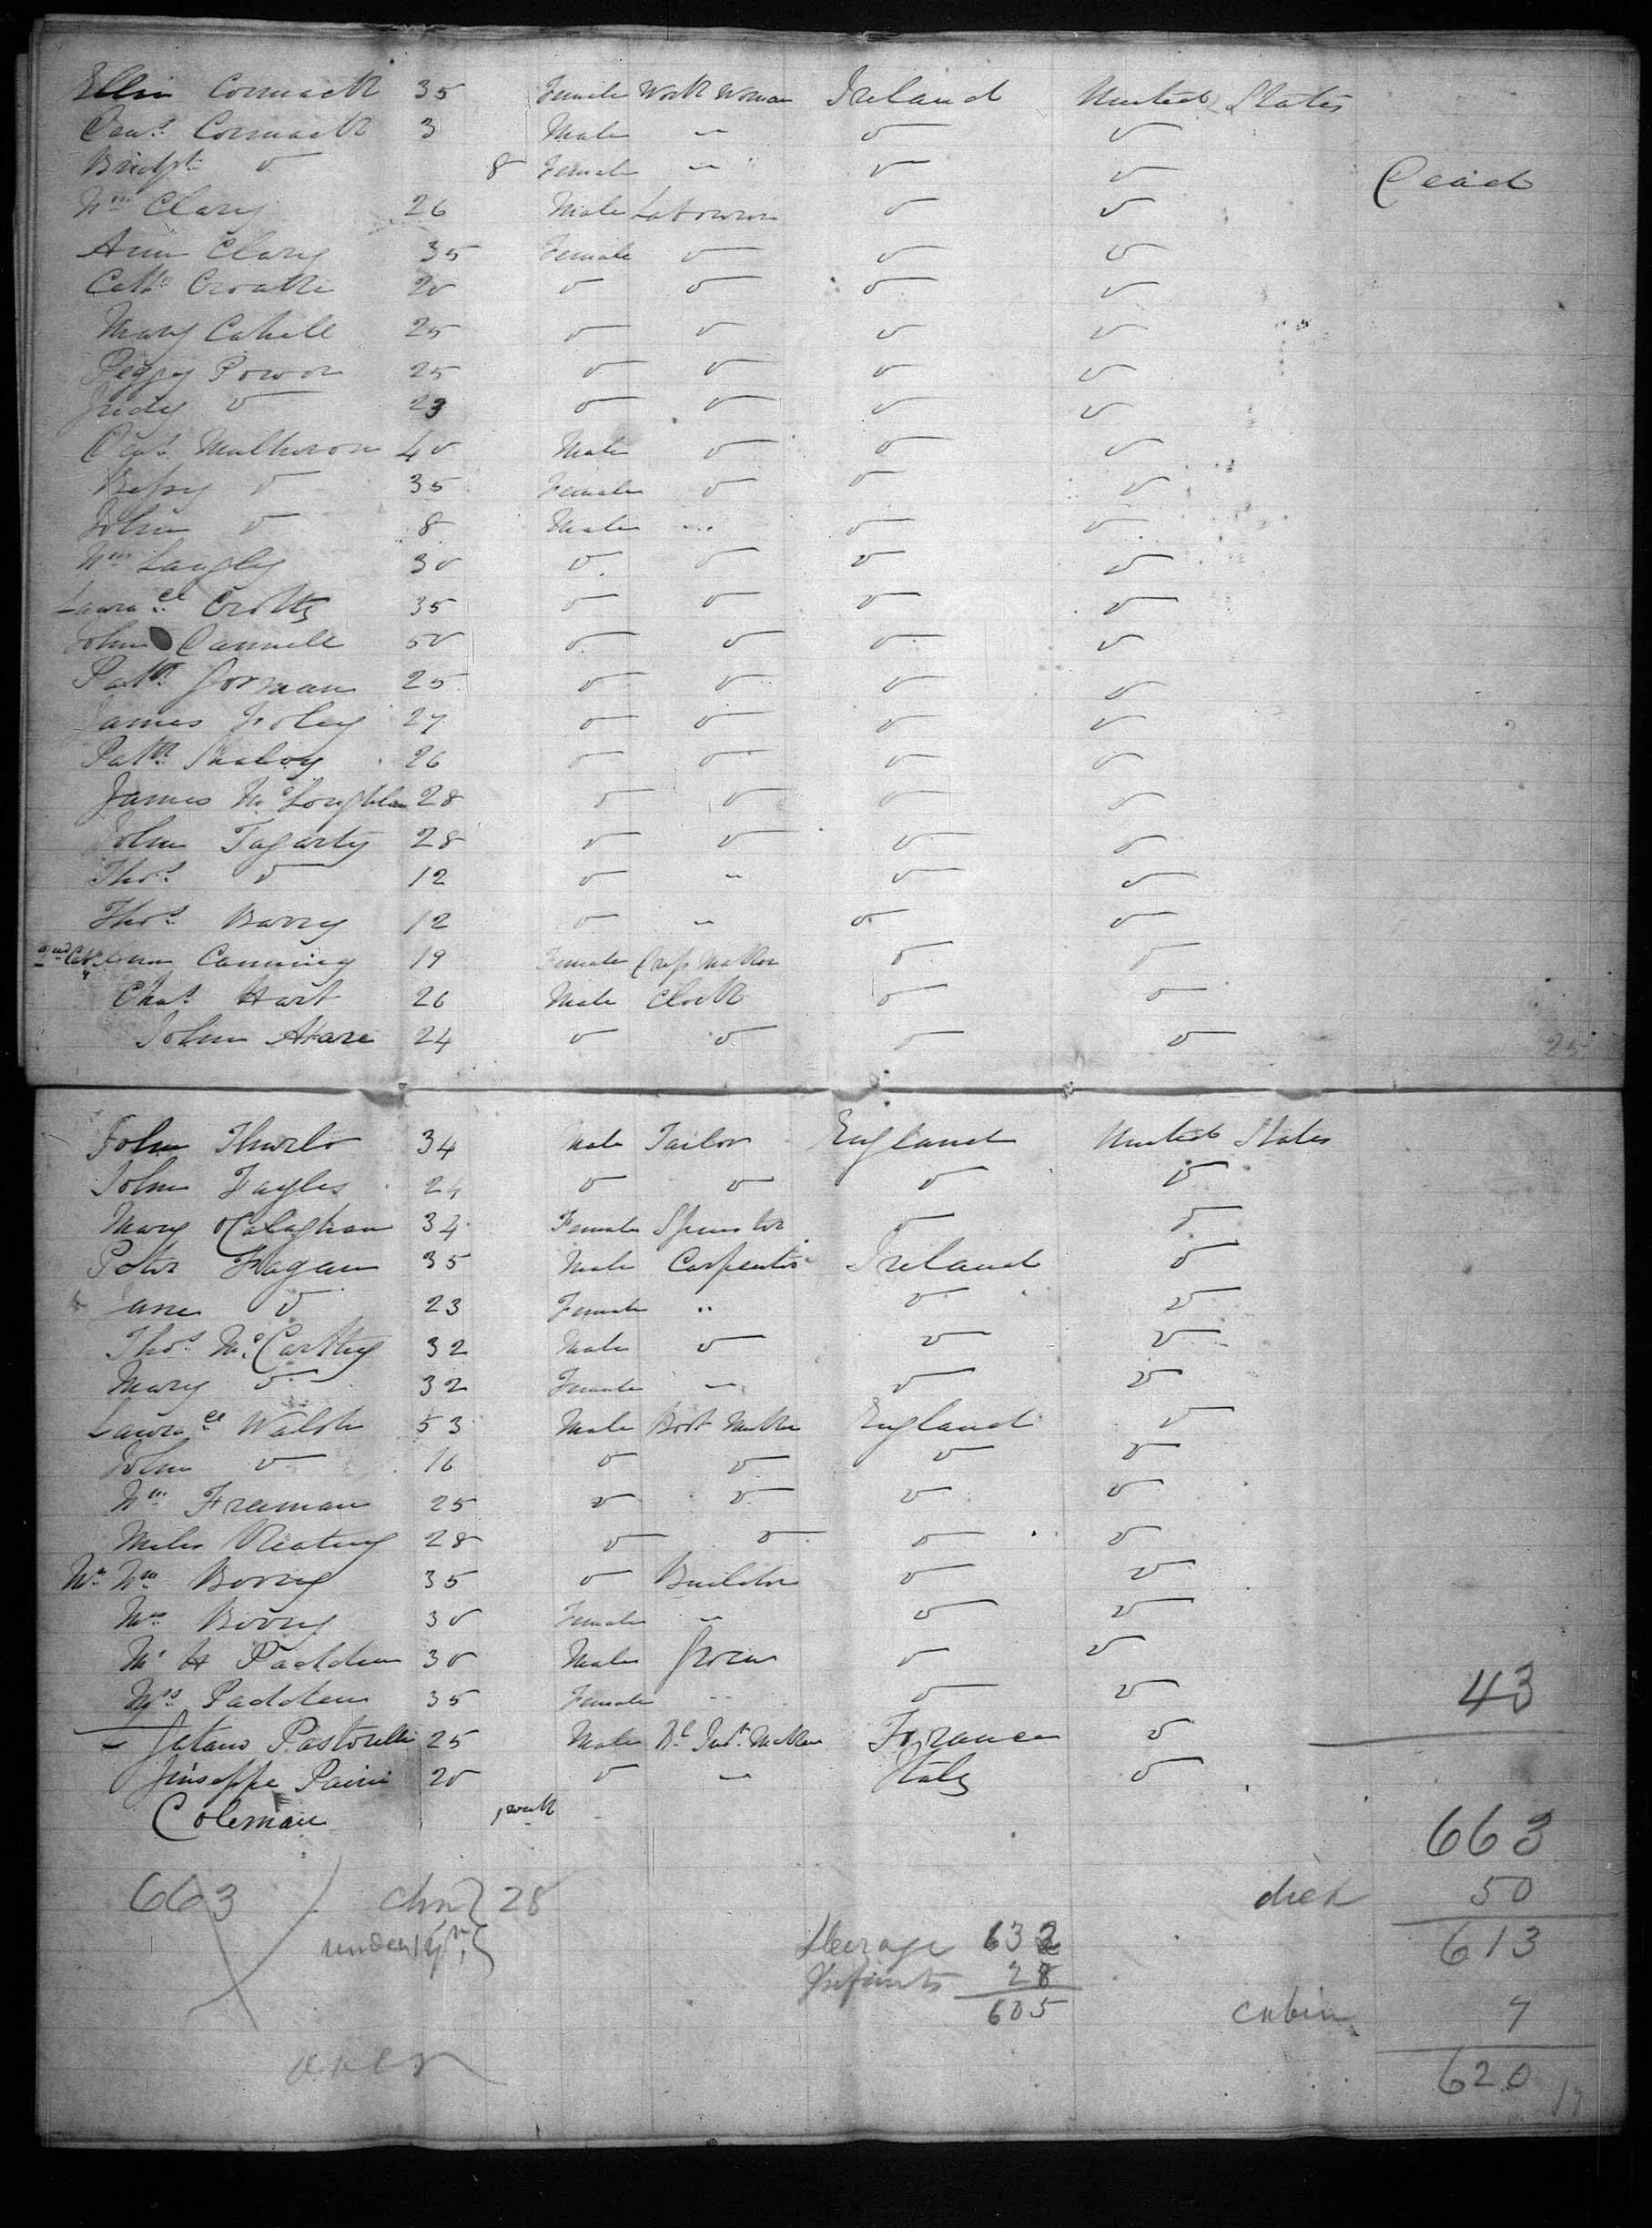 Ellin Cormack 35 Female Work Woman Ireland United States
Den.s Cormack 3 Male " v v
Bridgt v 8 Female " v v Dead
Wm Clary 26 Male Labourer v v
Ann Clary 35 Female v v v
Cath v v v v
Mary Cahill 25 v v v v
Peggy Power 25 v v v v
Judy v 23 v v v v
Mulheron 40 Male v v v
Bessy v 35 Female v v v
John v 8 Male " v v
Wm Langly 30 v v v v
Laurace Crotty 35 v v v v
John Dannell 50 v v v v
Patk Gorman 25 v v v v
James Foley 27 v v v v
Patk 26 v v v v
James McLoughlan 28 v v v v
John Fagarty 28 v v v v
Thos v 12 v " v v
Thos Barry 12 v " v v
2nd Cab. Ann Canning 19 Female Dress Maker v v
Chas Hart 26 Male Clerk v v
John Hare 24 v v v v 25
John Thurlo 34 Male Tailor England United States
John Fayles 24 v v v v
Mary O'Calaghan 34 Female Spinster v v
Peter Fagan 35 Male Carpenter Ireland v
Jane v 23 Female " v v
Thos McCarthy 32 Male v v v
Mary v 32 Female " v v
Laurace Walsh 53 Male Boot Maker England v
John v 16 v v v v
Wm Freeman 25 v v v v
Miles Keating 28 v v v v
Mr Wm 35 v Builder v v
Mrs 30 Female " v v
Mr H Padden 30 Male Grocer v v
Mrs Padden 35 Female " v v 43
Jatano Pastorelli 25 Male Maker France v
Jiuseppe Paini 20 v " Italy v
Coleman 1 week
663
663 chn 28 died 50
under 14 yrs Steerage 632 613
Infants 28
605 cabin 7
over 620